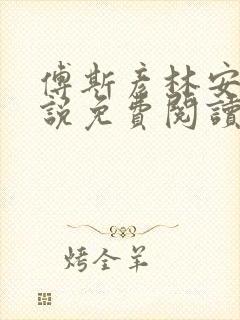 傅斯彦林安
說免費閱讀
烤全羊